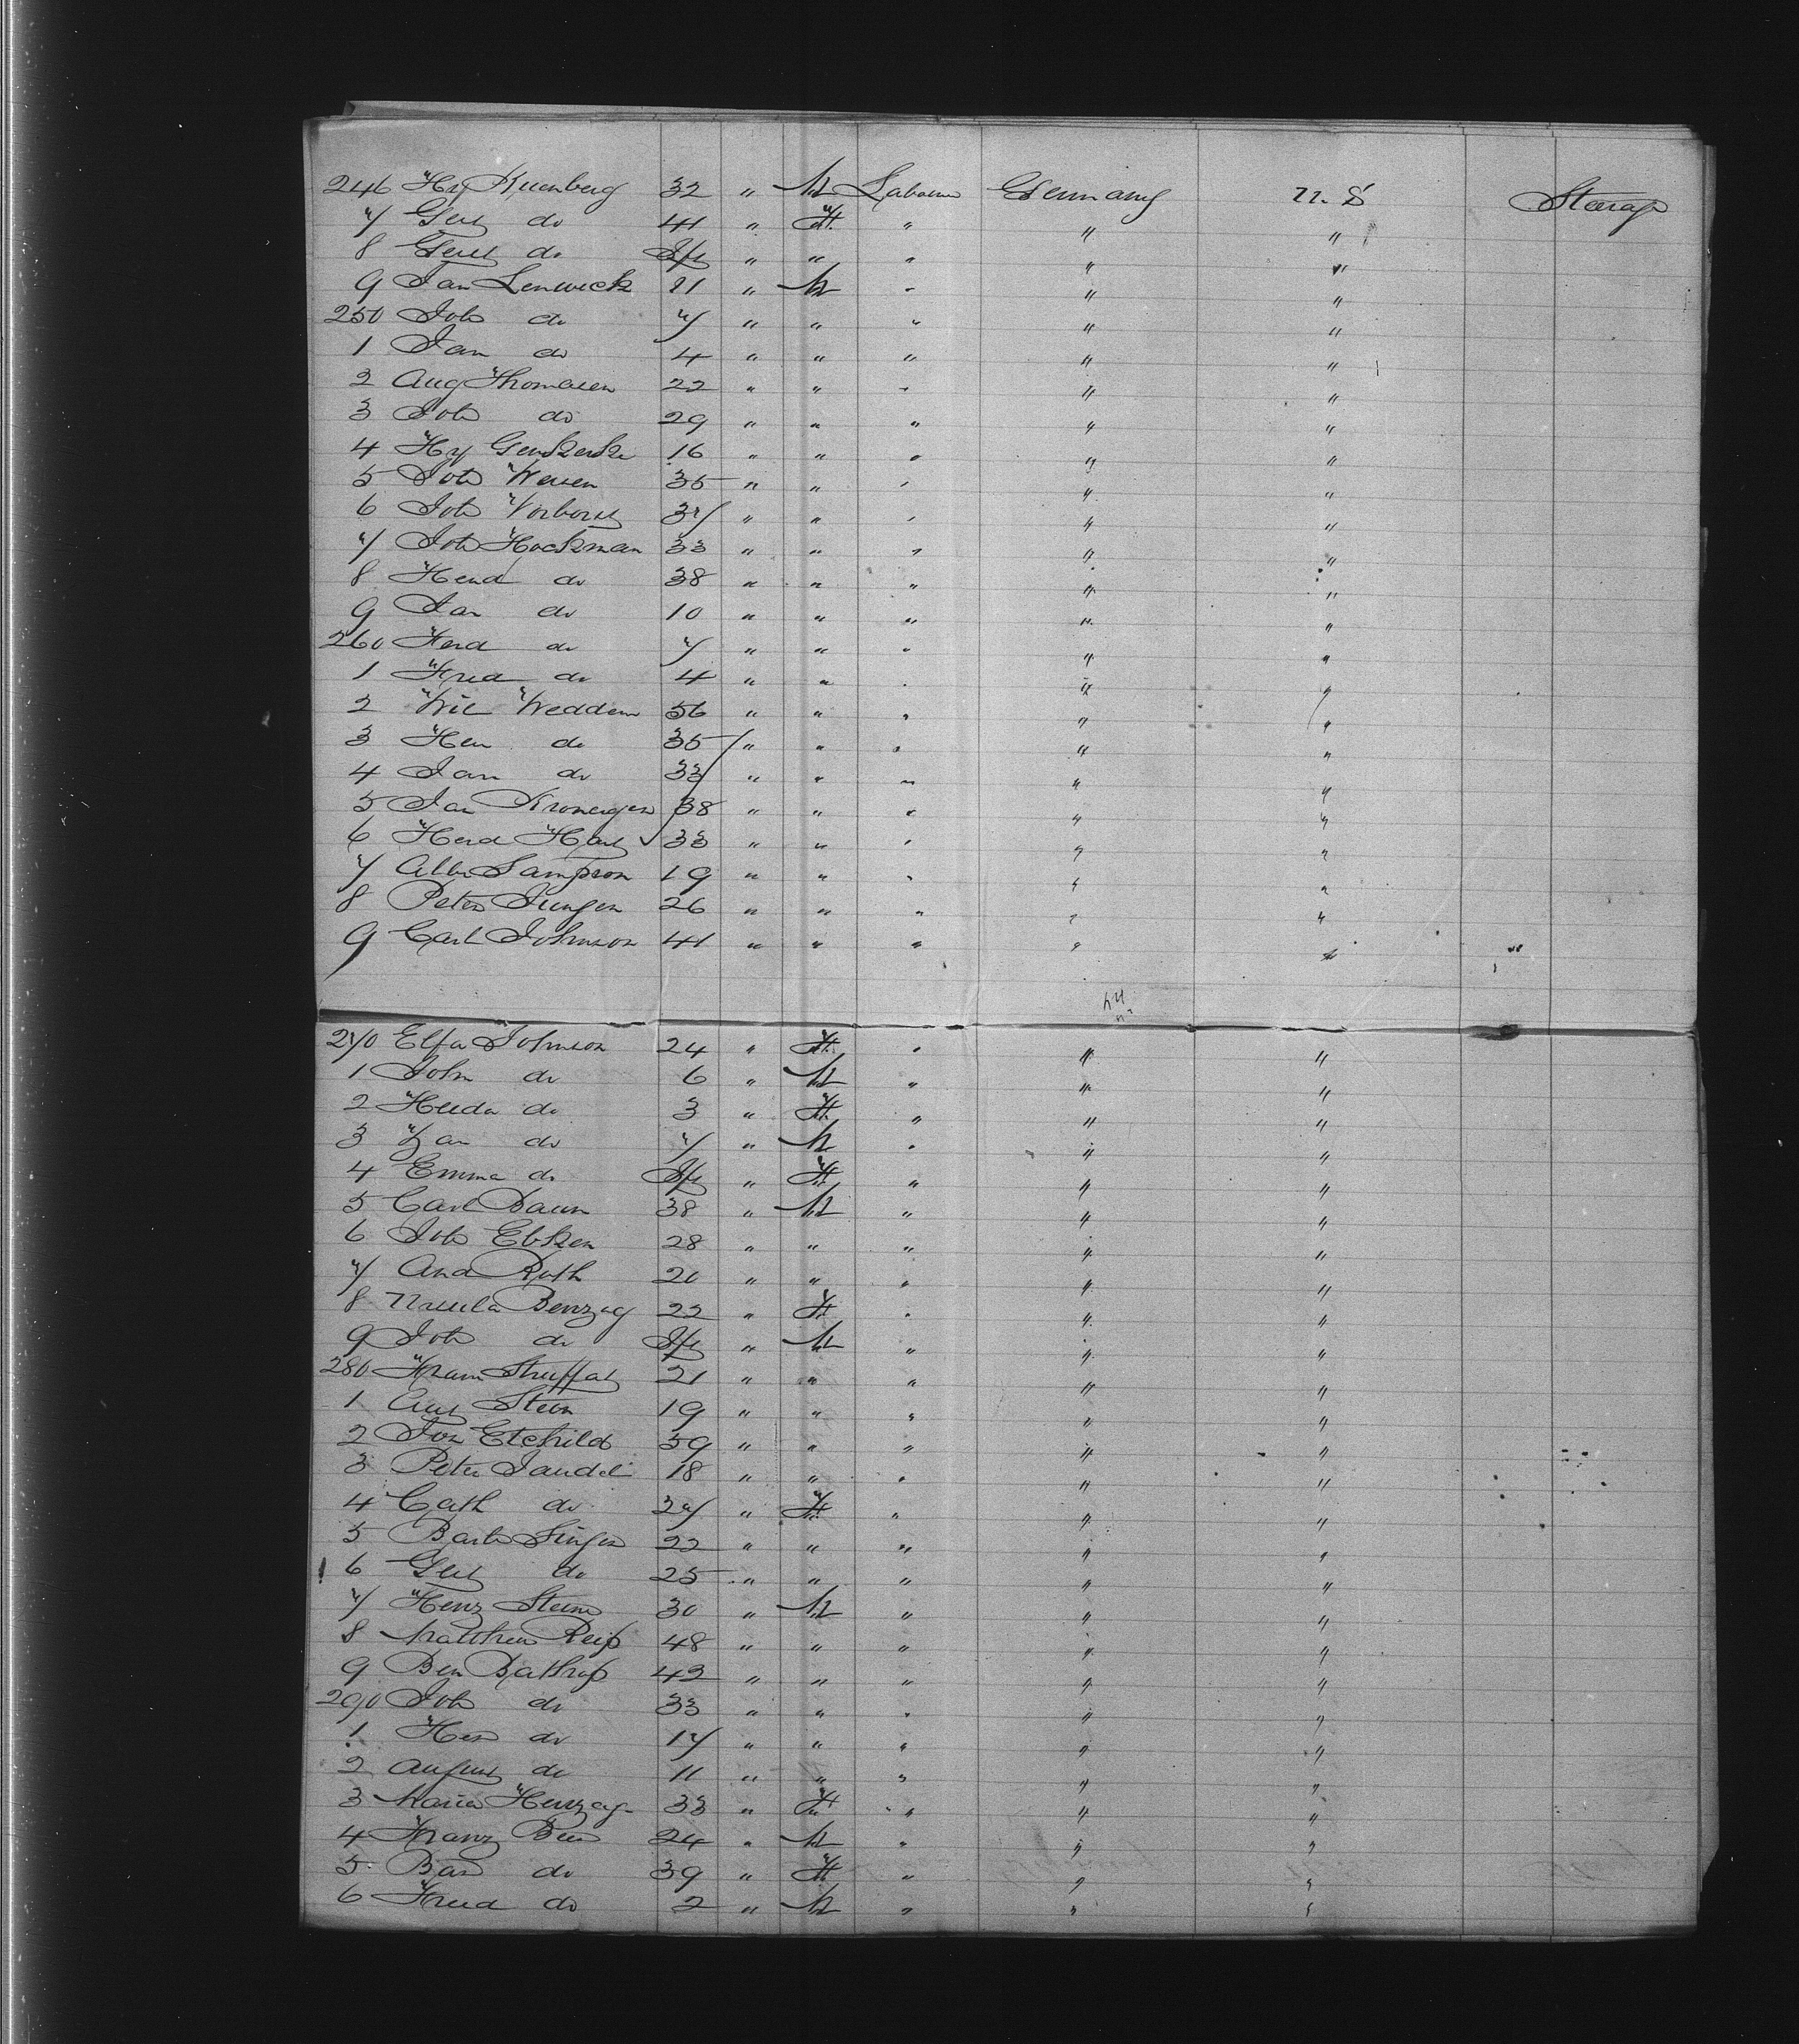 246 Hy Kuenberg 32 " M Laborer Germany U. S Steerage
7 Gert do 41 " F " " "
8 Gert do Inft " " " " "
9 Jan Lenwick 21 " M " " "
250 Joh do 7 " " " " "
1 Jan do 4 " " " " "
2 Aug Thomasen 22 " " " " "
3 Joh do 29 " " " " "
4 Hy 16 " " " " "
5 Joh Weven 35 " " " " "
6 Joh Vorborg 37 " " " " "
7 Joh Hockman 33 " " " " "
8 Hend do 38 " " " " "
9 Jan do 10 " " " " "
260 Ferd do 7 " " " " "
1 Fred do 4 " " " " "
2 Wil Weddem 56 " " " " "
3 Hen do 35 " " " " "
4 Jan do 33 " " " " "
5 Jan Kroneigen 38 " " " " "
6 Herd Hart 33 " " " " "
7 Albr Sampson 19 " " " " "
8 Peter Jungen 26 " " " " "
9 Carl Johnson 41 " " " " " "
270 Elfa Johnson 24 " F " " "
1 John do 6 " M " " "
2 Heeda do 3 " F " " "
3 do 7 " M " " "
4 Emma do Inft " F " " "
5 Carl Baun 38 " M " " "
6 Joh Ebken 28 " " " " "
7 And Roth 20 " " " " "
8 Ursula Benzag 22 " F " " "
9 Joh do Inft " M " " "
280 Franz 21 " " " " "
1 Aug Stern 19 " " " " "
2 Jos Etchild 59 " " " " "
3 Peter Jandel 18 " " " " "
4 Cath do 27 " F " " "
5 Barb Singer 22 " " " " "
6 Gert do 25 " " " " "
7 Henz Stern 30 " M " " "
8 Matthew Reip 48 " " " " "
9 Ben Bathrop 42 " " " " "
290 Joh do 33 " " " " "
1 Hen do 17 " " " " "
2 August do 11 " " " " "
3 Maria Herzog 33 " F " " "
4 Franz Beer 24 " M " " "
5 Bar do 39 " F " " "
6 Fred do 2 " M " " "